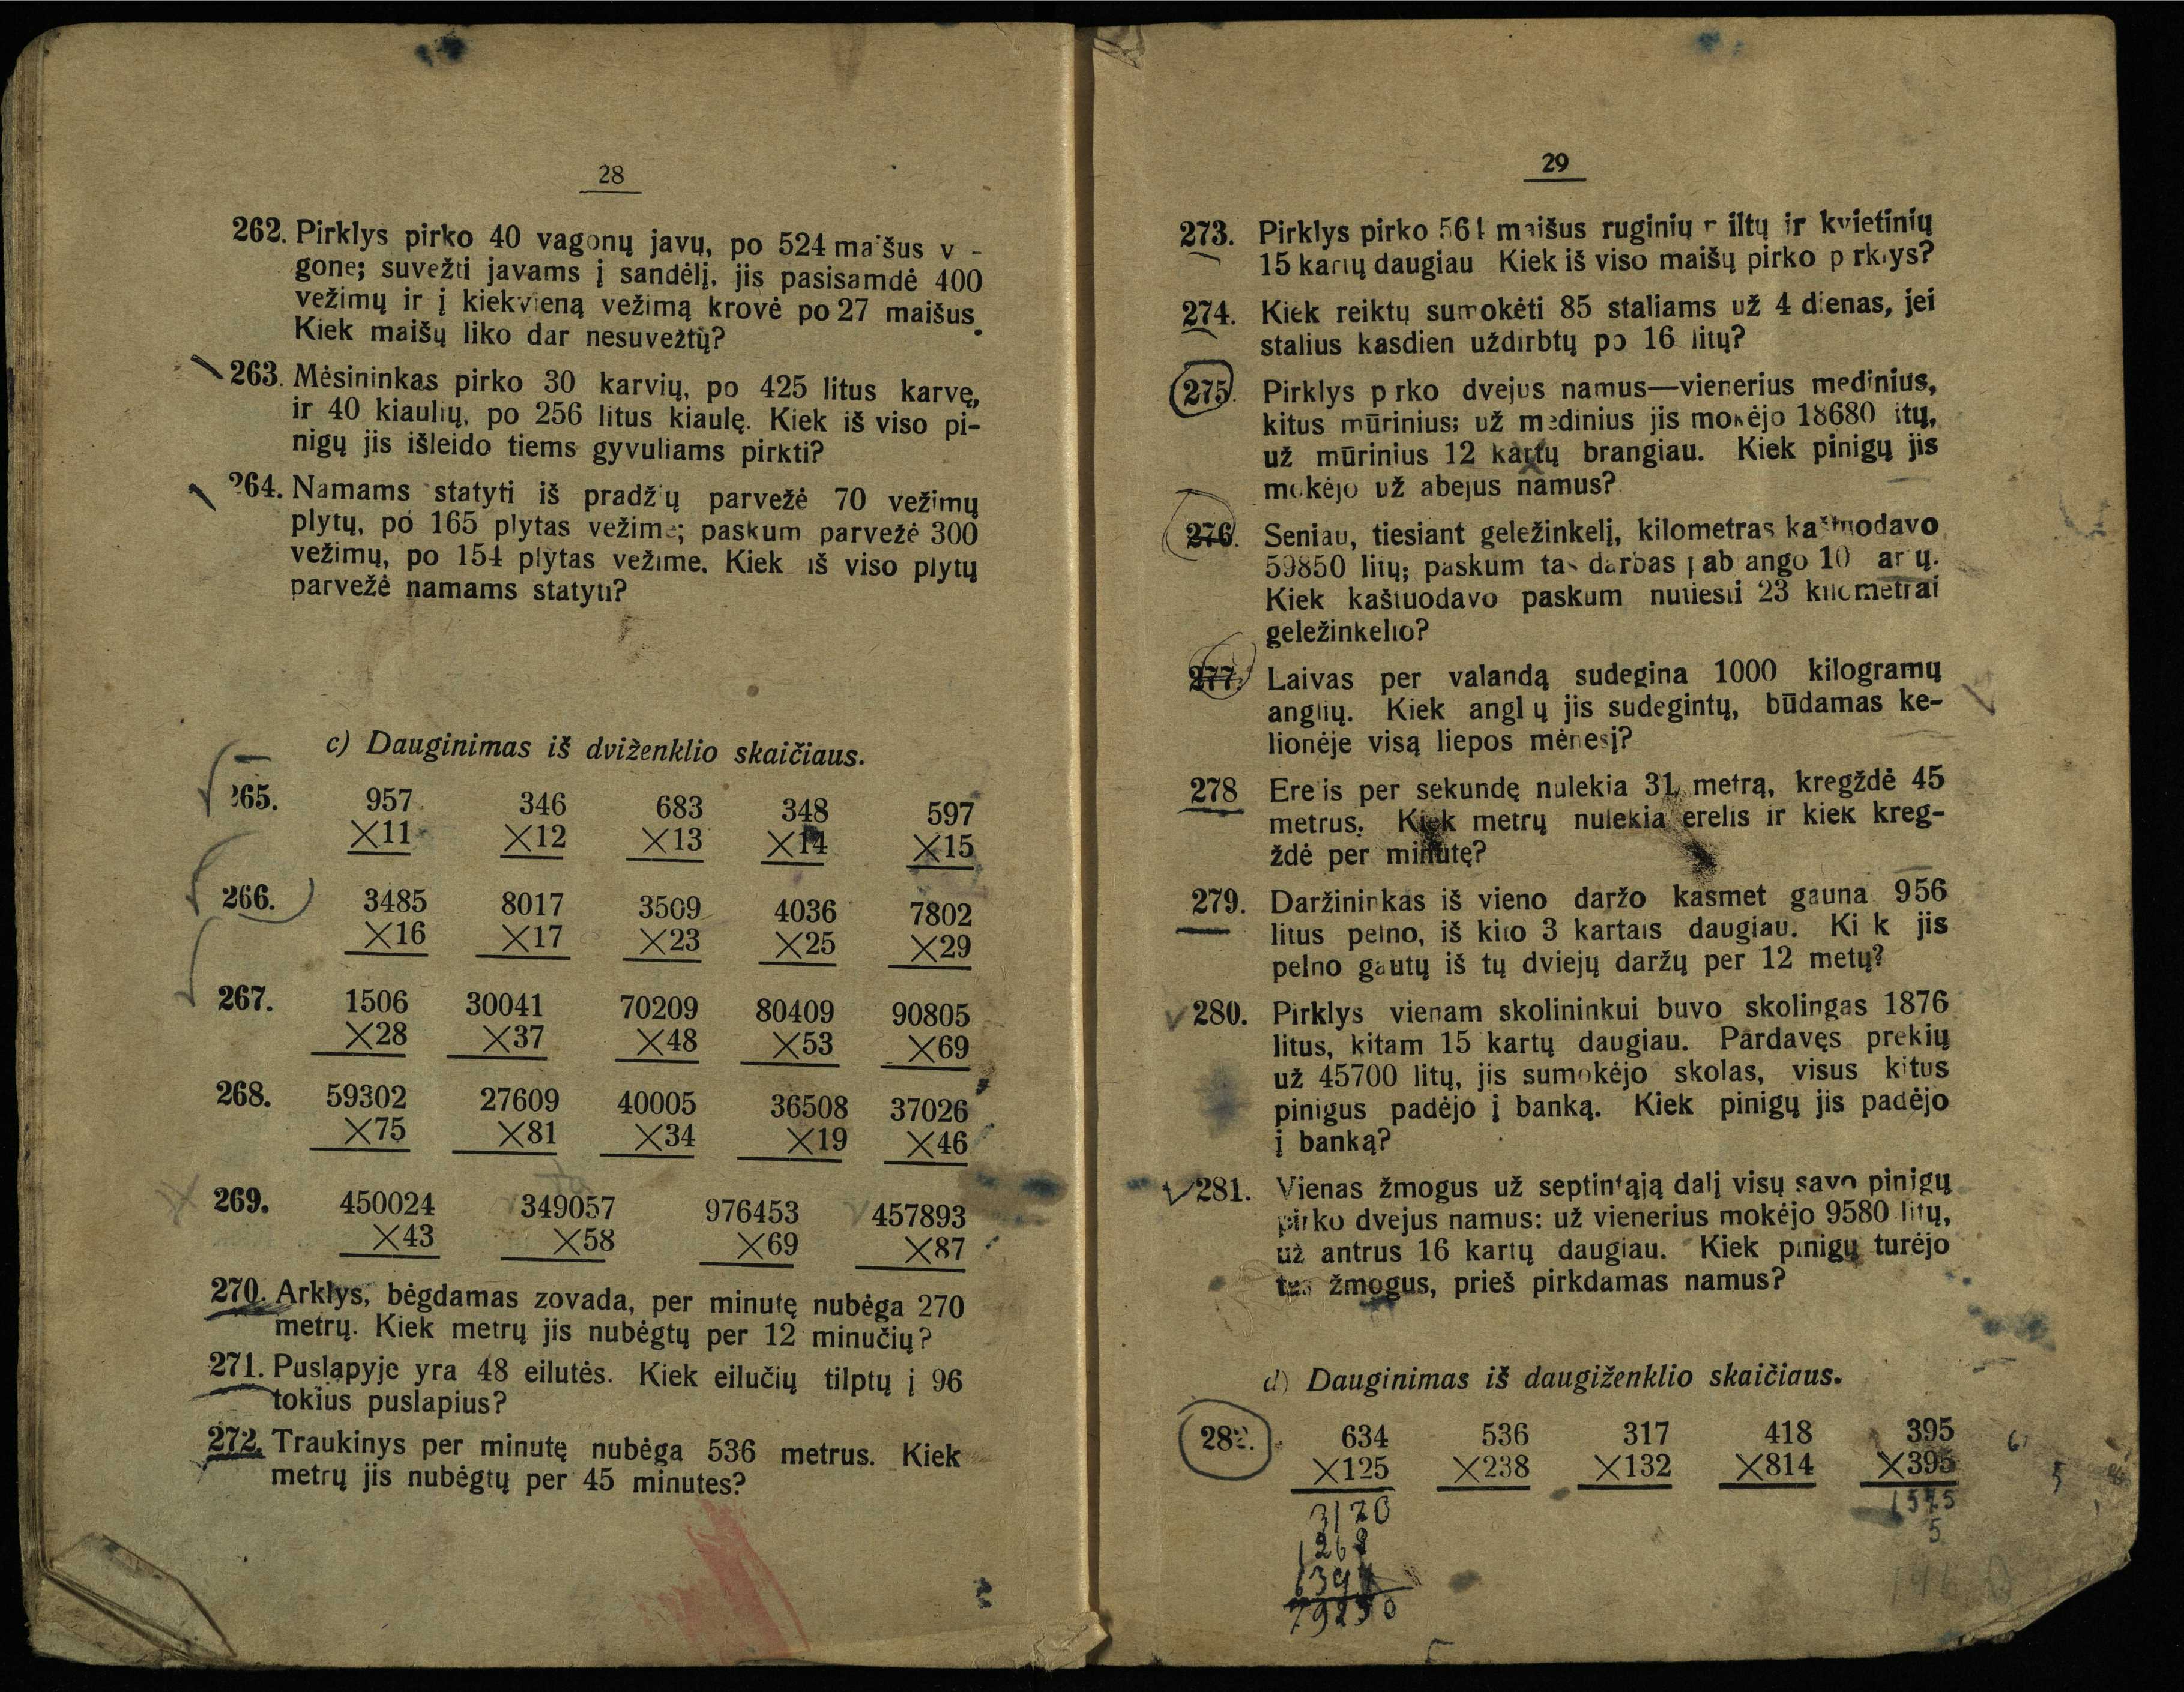 28
262. Pirklys pirko 40 vagonų javų, po 524 maišus v -
gone; suvežti javams į sandėlį, jis pasisamdė 400
vežimų ir į kiekvieną vežimą krovė po 27 maišus.
Kiek maišų liko dar nesuvežtų?
263. Mėsininkas pirko 30 karvių, po 425 litus karvę,
ir 40 kiaulių, po 256 litus kiaulę. Kiek iš viso pi-
nigų jis išleido tiems gyvuliams pirkti?
264. Namams statyti iš pradžių parvežė 70 vežimų
plytų, po 165 plytas vežime; paskum parvežė 300
vežimų, po 154 plytas vežime. Kiek iš viso plytų
parvežė namams statyti?
c) Dauginimas iš dviženklio skaičiaus.
265. 957 346 683 348 597
×11 ×12 ×13 ×14 ×15
266. 3485 8017 3509 4036 7802
×16 ×17 ×23 ×25 ×29
267. 1506 30041 70209 80409 90805
×28 ×37 ×48 ×53 ×69
268. 59302 27609 40005 36508 37026
×75 ×81 ×34 ×19 ×46
269. 450024 349057 976453 457893
×43 ×58 ×69 ×87
270. Arklys, bėgdamas zovada, per minutę nubėga 270
metrų. Kiek metrų jis nubėgtų per 12 minučių?
271. Puslapyje yra 48 eilutės. Kiek eilučių tilptų į 96
tokius puslapius?
272. Traukinys per minutę nubėga 536 metrus. Kiek
metrų jis nubėgtų per 45 minutes?
29
273. Pirklys pirko 561 maišus ruginių miltų ir kvietinių
15 kartų daugiau Kiek iš viso maišų pirko pirklys?
274. Kiek reiktų sumokėti 85 staliams už 4 dienas, jei
stalius kasdien uždirbtų po 16 litų?
275. Pirklys pirko dvejus namus—vienerius medinius,
kitus mūrinius; už medinius jis mokėjo 18680 litų,
už mūrinius 12 kartų brangiau. Kiek pinigų jis
mokėjo už abejus namus?
276. Seniau, tiesiant geležinkelį, kilometras kaštuodavo
59850 litų; paskum tas darbas pabrango 10 kartų.
Kiek kaštuodavo paskum nutiesti 23 kilometrai
geležinkelio?
277. Laivas per valandą sudegina 1000 kilogramų
anglių. Kiek anglių jis sudegintų, būdamas ke-
lionėje visą liepos mėnesį?
278 Erelis per sekundę nulekia 31 metrą, kregždė 45
metrus. Kiek metrų nulekia erelis ir kiek kreg-
ždė per minutę?
279. Daržininkas iš vieno daržo kasmet gauna 956
litus pelno, iš kito 3 kartais daugiau. Kiek jis
pelno gautų iš tų dviejų daržų per 12 metų?
280. Pirklys vienam skolininkui buvo skolingas 1876
litus, kitam 15 kartų daugiau. Pardavęs prekių
už 45700 litų, jis sumokėjo skolas, visus kitus
pinigus padėjo į banką. Kiek pinigų jis padėjo
į banką?
281. Vienas žmogus už septintąją dalį visų savo pinigų
pirko dvejus namus: už vienerius mokėjo 9580 litų,
už antrus 16 kartų daugiau. Kiek pinigų turėjo
tas žmogus, prieš pirkdamas namus?
d) Dauginimas iš daugiženklio skaičiaus.
282. 634 536 317 418 395
×125 ×238 ×132 ×814 ×395
3170 1575
1268 5
79250